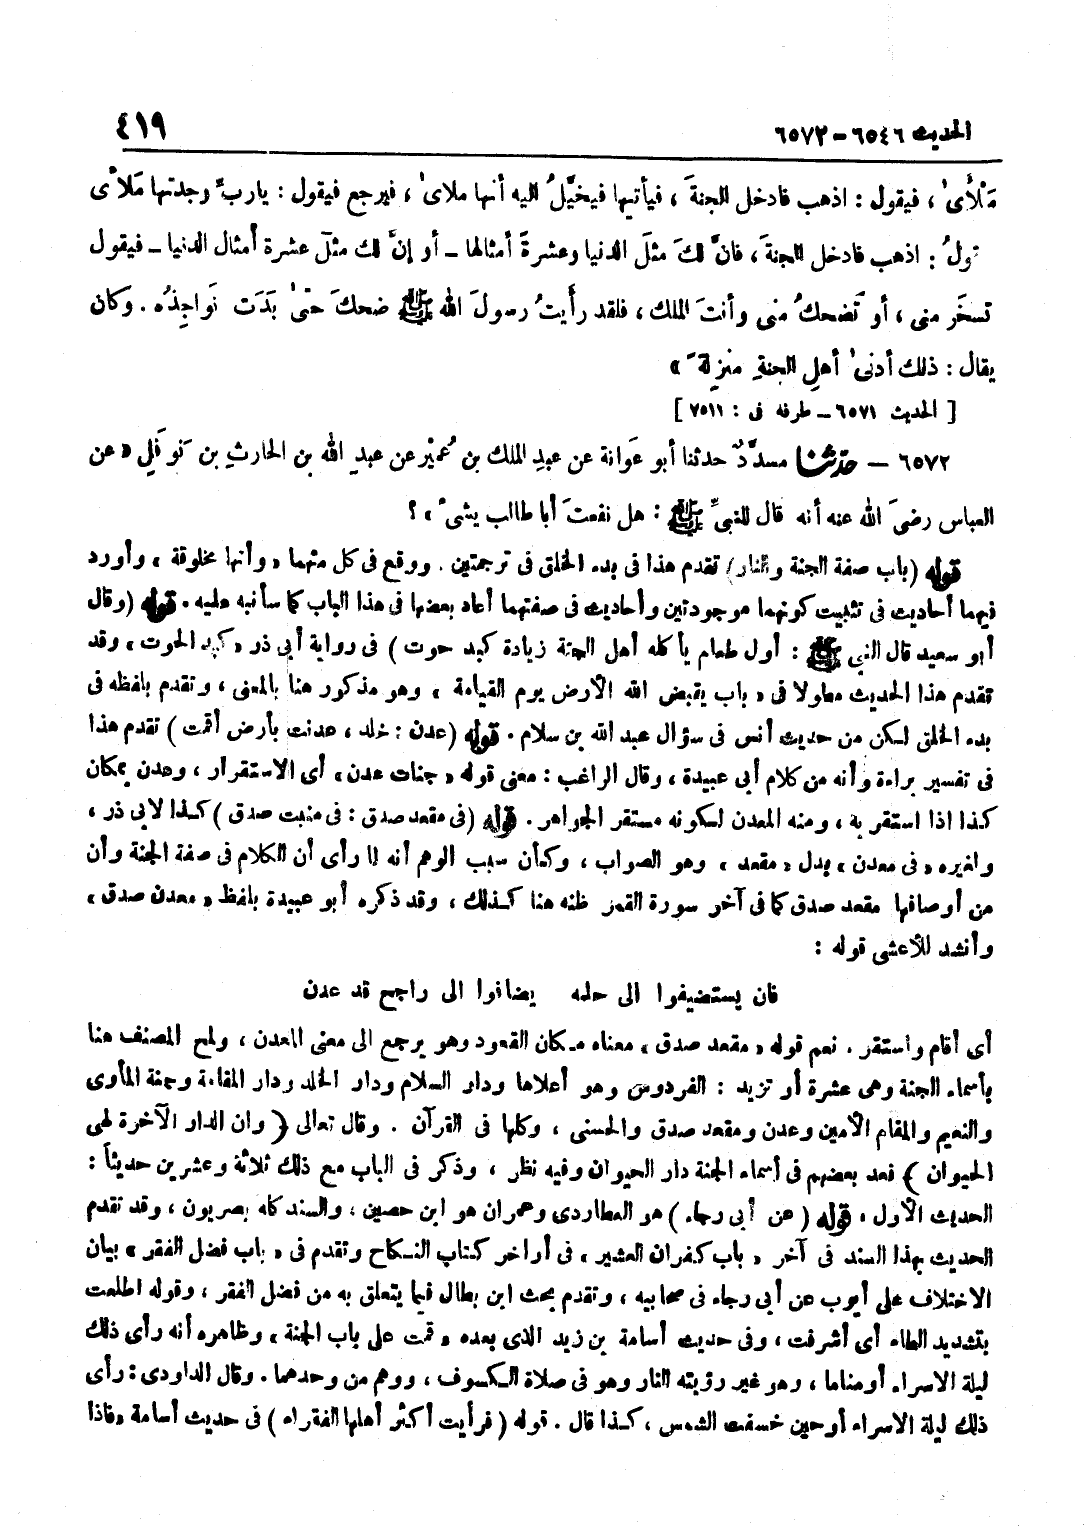 الحديث ٦٥٤٦ – ٦٥٧٢ ٤١٩
مَلْأى ، فيقول : اذهب فادخل الجنةَ ، فيأتيها فيخيَّلُ اليه أنها ملاى ، فيرجع فيقول : يارب وجدتها مَلأى
ول : اذهب فادخل الجنةَ ، فانَّ لكَ مثلَ الدنيا وعشرةَ أمثالها ــ أو إنَّ لك مثلَ عشرة أمثال الدنيا ــ فيقول
تسخَر منى ، أو تَضحكُ منى وأنتَ الملك ، فلقد رأيتُ رسولَ الله ﷺ ضحكَ حتىٰ بَدَت نَواجِذُه . وكان
يقال : ذلك أدنىٰ أهلِ الجنةِ منزلةً »
[ الحديث ٦٥٧١ – طرفه فى : ٧٥١١ ]
٦٥٧٢ – حدّثنا مسدَّدٌ حدثنا أبو عَوانة عن عبدِ الملك بن عُمَيْر عن عبدِ الله بن الحارثِ بن نَوفَلِ « عن
العباس رضىَ الله عنه أنه قال للنبىِّ ﷺ : هل نفعتَ أبا طالب بشىءٍ » ؟
قوله (باب صفة الجنة والنار) تقدم هذا فى بدء الخلق فى ترجمتين . ووقع فى كل منهما « وأنها مخلوقة » وأورد
فيهما أحاديث فى تثبيت كونهما موجودتين وأحاديث فى صفتهما أعاد بعضها فى هذا الباب كما سأنبه عليه . قوله (وقال
أبو سعيد قال النبى ﷺ : أول طعام يأكله أهل الجنة زيادة كبد حوت ) فى رواية أبى ذر « كبد الحوت » وقد
تقدم هذا الحديث مطولا فى « باب يقبض الله الأرض يوم القيامة » وهو مذكور هنا بالمعنى ، وتقدم بلفظه فى
بدء الخلق لكن من حديث أنس فى سؤال عبد الله بن سلام . قوله (عدن : خلد ، عدنت بأرض أقمت ) تقدم هذا
فى تفسير براءة وأنه من كلام أبى عبيدة ، وقال الراغب : معنى قوله « جنات عدن » أى الاستقرار ، وعدن بمكان
كذا اذا استقر به ، ومنه المعدن لكونه مستقر الجواهر . قوله (فى مقعد صدق : فى منبت صدق ) كذا لابى ذر ،
ولغيره « فى معدن » بدل « مقعد » وهو الصواب ، وكأن سبب الوهم أنه لما رأى أن الكلام فى صفة الجنة وأن
من أوصافها مقعد صدق كما فى آخر سورة القمر ظنه هنا كذلك ، وقد ذكره أبو عبيدة بلفظ « معدن صدق »
وأنشد للأعشى قوله :
فان يستضيفوا الى حلمه يضافوا الى راجح قد عدن
أى أقام واستقر . نعم قوله « مقعد صدق » معناه مكان القعود وهو يرجع الى معنى المعدن ، ولمح المصنف هنا
بأسماء الجنة وهى عشرة أو تزيد : الفردوس وهو أعلاها ودار السلام ودار الخلد ودار المقامة وجنة المأوى
والنعيم والمقام الأمين وعدن ومقعد صدق والحسنى ، وكلها فى القرآن . وقال تعالى ﴿ وان الدار الآخرة لهى
الحيوان ﴾ فعد بعضهم فى أسماء الجنة دار الحيوان وفيه نظر ، وذكر فى الباب مع ذلك ثلاثة وعشرين حديثاً :
الحديث الأول . قوله ( عن أبى رجاء ) هو العطاردى وعمران هو ابن حصين ، والسند كله بصريون ، وقد تقدم
الحديث بهذا السند فى آخر « باب كفران العشير » فى أواخر كتاب النكاح وتقدم فى « باب فضل الفقر » بيان
الاختلاف على أيوب عن أبى رجاء فى صحابيه ، وتقدم بحث ابن بطال فيما يتعلق به من فضل الفقر ، وقوله اطلعت
بتشديد الطاء أى أشرفت ، وفى حديث أسامة بن زيد الذى بعده « قمت على باب الجنة » وظاهره أنه رأى ذلك
ليلة الاسراء أو مناما ، وهو غير رؤيته النار وهو فى صلاة الكسوف ، ووهم من وحدهما . وقال الداودى : رأى
ذلك ليلة الاسراء أو حين خسفت الشمس ، كذا قال . قوله ( فرأيت أكثر أهلها الفقراء ) فى حديث أسامة « فاذا